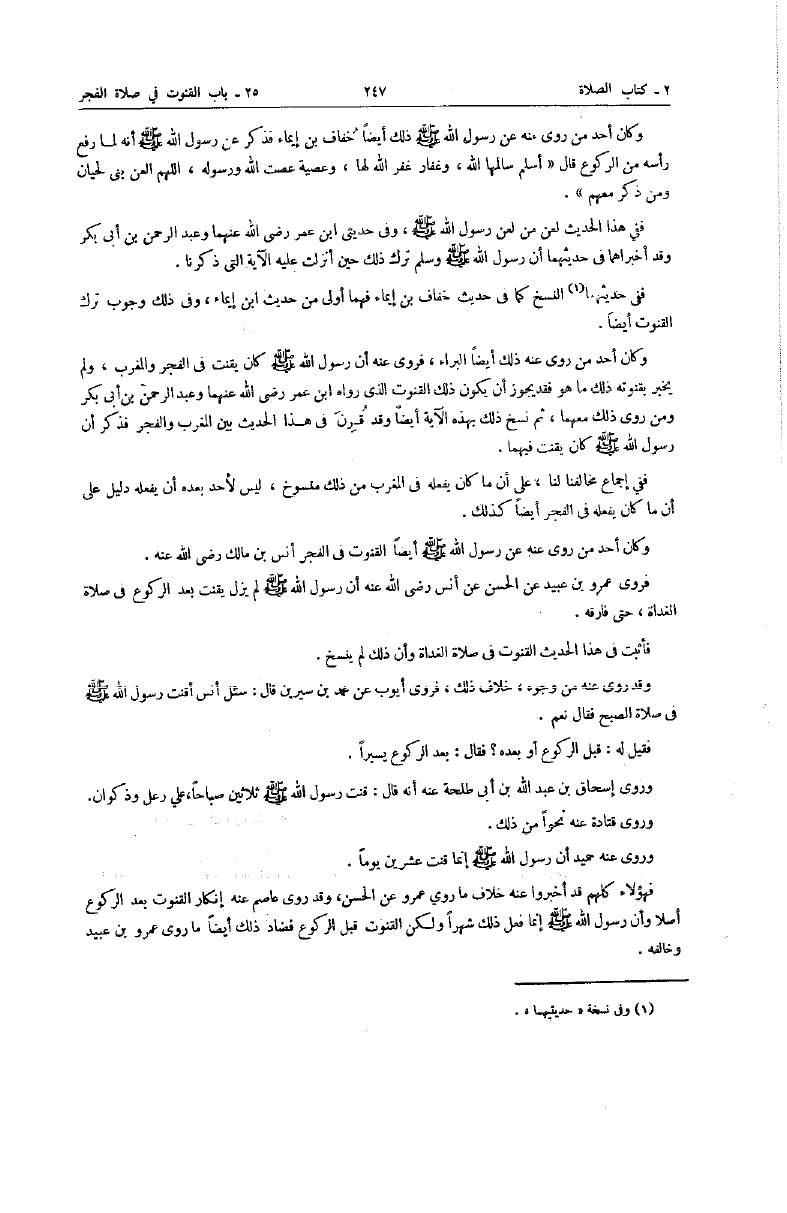 ٢ ـ كتاب الصلاة ٢٤٧ ٢٥ ـ باب القنوت في صلاة الفجر
وكان أحد من روى عنه عن رسول الله ﷺ ذلك أيضاً خفاف بن إيماء فذكر عن رسول الله ﷺ أنه لما رفع
رأسه من الركوع قال « أسلم سالمها الله ، وغفار غفر الله لها ، وعصية عصت الله ورسوله ، اللهم العن بنى لحيان
ومن ذكر معهم » .
ففي هذا الحديث لعن من لعن رسول الله ﷺ ، وفى حديثى ابن عمر رضى الله عنهما وعبد الرحمن بن أبى بكر
وقد أخبراهما فى حديثهما أن رسول الله ﷺ وسلم ترك ذلك حين أنزلت عليه الآية التى ذكرنا .
ففى حديثهما(١) النسخ كما فى حديث خفاف بن إيماء فهما أولى من حديث ابن إيماء ، وفى ذلك وجوب ترك
القنوت أيضاً .
وكان أحد من روى عنه ذلك أيضاً البراء ، فروى عنه أن رسول الله ﷺ كان يقنت فى الفجر والمغرب ، ولم
يخبر بقنوته ذلك ما هو فقد يجوز أن يكون ذلك القنوت الذى رواه ابن عمر رضى الله عنهما وعبد الرحمن بن أبى بكر
ومن روى ذلك معهما ، ثم نسخ ذلك بهذه الآية أيضاً وقد قُرِنَ فى هـذا الحديث بين المغرب والفجر فذكر أن
رسول الله ﷺ كان يقنت فيهما .
ففي إجماع مخالفنا لنا ، على أن ما كان يفعله فى المغرب من ذلك منسوخ ، ليس لأحد بعده أن يفعله دليل على
أن ما كان يفعله فى الفجر أيضاً كذلك .
وكان أحد من روى عنه عن رسول الله ﷺ أيضاً القنوت فى الفجر أنس بن مالك رضى الله عنه .
فروى عمرو بن عبيد عن الحسن عن أنس رضى الله عنه أن رسول الله ﷺ لم يزل يقنت بعد الركوع فى صلاة
الغداة ، حتى فارقه .
فأثبت فى هذا الحديث القنوت فى صلاة الغداة وأن ذلك لم ينسخ .
وقد روى عنه من وجوه ، خلاف ذلك ، فروى أيوب عن محمد بن سيرين قال : سئل أنس أقنت رسول الله ﷺ
فى صلاة الصبح فقال نعم .
فقيل له : قبل الركوع أو بعده ؟ فقال : بعد الركوع يسيراً .
وروى إسحاق بن عبد الله بن أبى طلحة عنه أنه قال : قنت رسول الله ﷺ ثلاثين صباحاً،علي رعل وذكوان.
وروى قتادة عنه نحواً من ذلك .
وروى عنه حميد أن رسول الله ﷺ إنما قنت عشرين يوماً .
فهؤلاء كلهم قد أخبروا عنه خلاف ما روي عمرو عن الحسن، وقد روى عاصم عنه إنكار القنوت بعد الركوع
أصلا وأن رسول الله ﷺ إنما فعل ذلك شهراً ولكن القنوت قبل الركوع فضاد ذلك أيضاً ما روى عمرو بن عبيد
وخالفه .
(١) وفى نسخة « حديثيهما » .